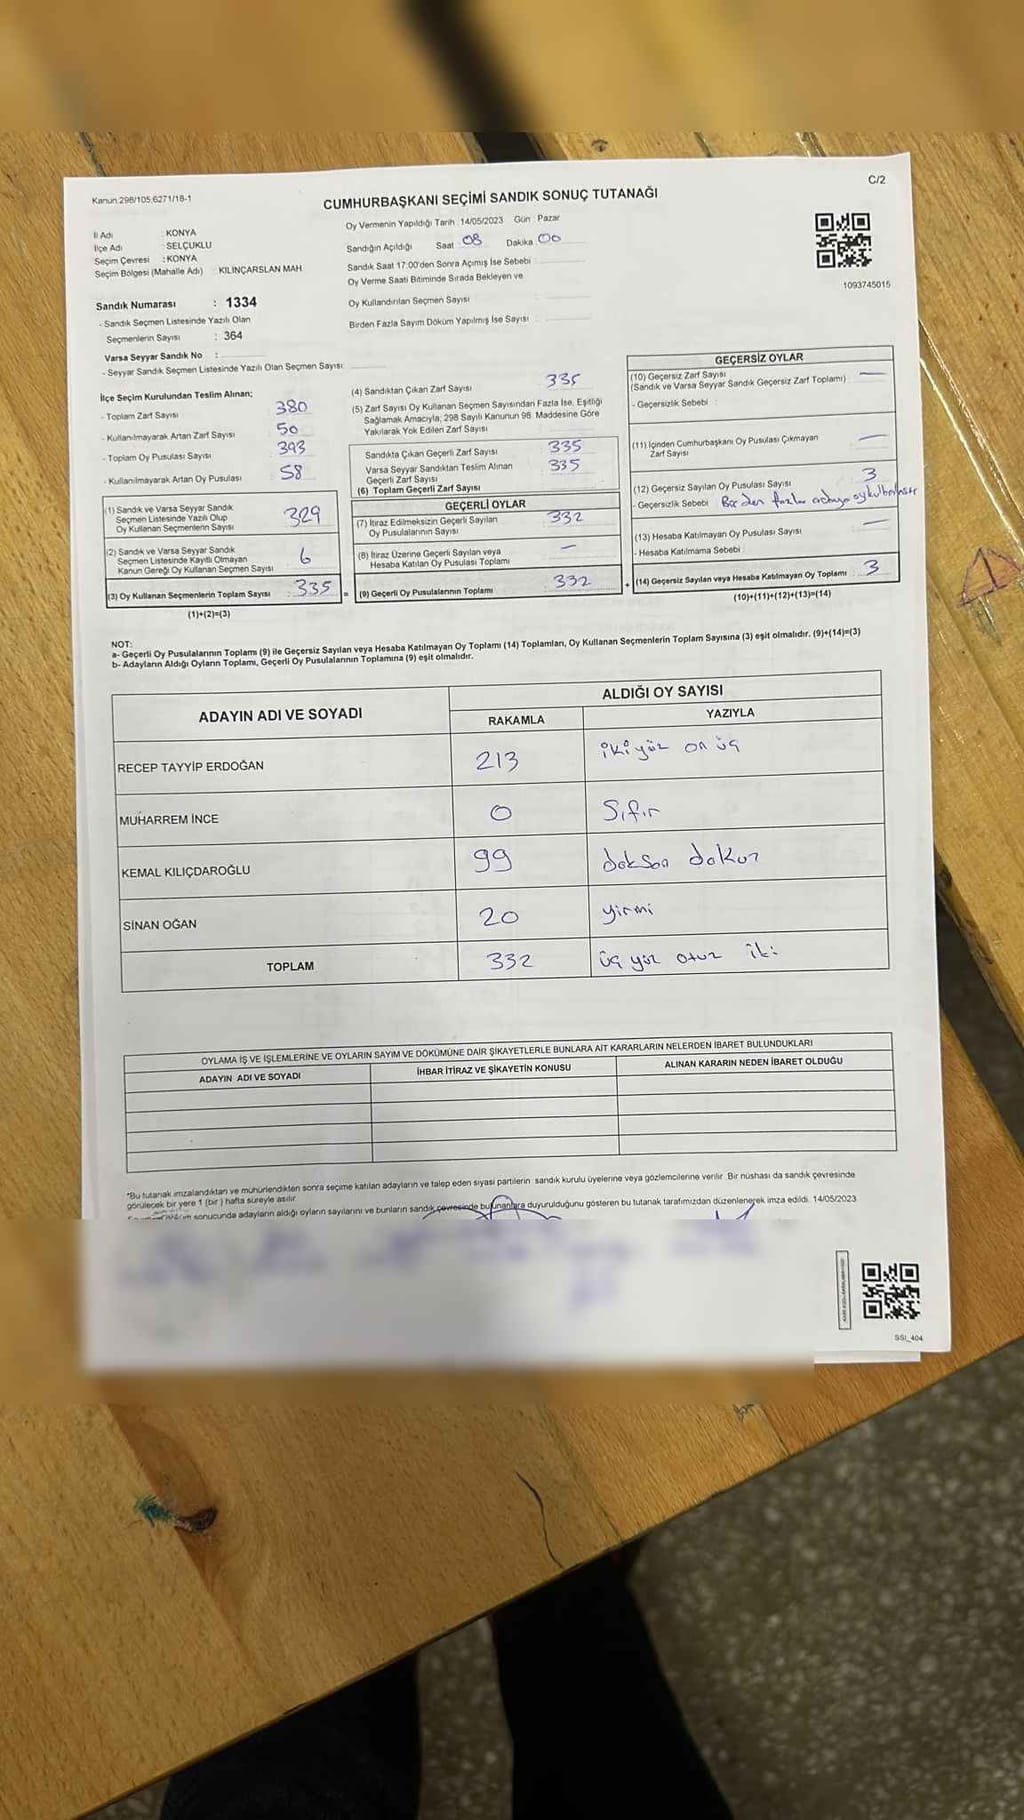 Kanun 298/105,6271/18-1
C/2
CUMHURBAŞKANI SEÇİMİ SANDIK SONUÇ TUTANAĞI
İl Adı : KONYA
İlçe Adı : SELÇUKLU
Seçim Çevresi : KONYA
Seçim Bölgesi (Mahalle Adı) : KILINÇARSLAN MAH.
Oy Vermenin Yapıldığı Tarih 14/05/2023 Gün Pazar
Sandığın Açıldığı Saat 08 Dakika 00
Sandık Saat 17:00'den Sonra Açımış İse Sebebi
Oy Verme Saati Bitiminde Sırada Bekleyen ve
Oy Kullandırılan Seçmen Sayısı :
Birden Fazla Sayım Döküm Yapılmış İse Sayısı :
1093745015
Sandık Numarası : 1334
- Sandık Seçmen Listesinde Yazılı Olan
Seçmenlerin Sayısı : 364
Varsa Seyyar Sandık No :
- Seyyar Sandık Seçmen Listesinde Yazılı Olan Seçmen Sayısı:
İlçe Seçim Kurulundan Teslim Alınan;
- Toplam Zarf Sayısı 380
- Kullanılmayarak Artan Zarf Sayısı 50
- Toplam Oy Pusulası Sayısı 393
- Kullanılmayarak Artan Oy Pusulası 58
(1) Sandık ve Varsa Seyyar Sandık
Seçmen Listesinde Yazılı Olup
Oy Kullanan Seçmenlerin Sayısı 329
(2) Sandık ve Varsa Seyyar Sandık
Seçmen Listesinde Kayıtlı Olmayan
Kanun Gereği Oy Kullanan Seçmen Sayısı 6
(3) Oy Kullanan Seçmenlerin Toplam Sayısı : 335 =
(1)+(2)=(3)
(4) Sandıktan Çıkan Zarf Sayısı 335
(5) Zarf Sayısı Oy Kullanan Seçmen Sayısından Fazla İse, Eşitliği
Sağlamak Amacıyla; 298 Sayılı Kanunun 98. Maddesine Göre
Yakılarak Yok Edilen Zarf Sayısı
Sandıkta Çıkan Geçerli Zarf Sayısı 335
Varsa Seyyar Sandıktan Teslim Alınan
Geçerli Zarf Sayısı 335
(6) Toplam Geçerli Zarf Sayısı
GEÇERLİ OYLAR
(7) İtiraz Edilmeksizin Geçerli Sayılan
Oy Pusulalarının Sayısı 332
(8) İtiraz Üzerine Geçerli Sayılan veya
Hesaba Katılan Oy Pusulası Toplamı —
(9) Geçerli Oy Pusulalarının Toplamı 332 +
GEÇERSİZ OYLAR
(10) Geçersiz Zarf Sayısı —
(Sandık ve Varsa Seyyar Sandık Geçersiz Zarf Toplamı)
- Geçersizlik Sebebi :
(11) İçinden Cumhurbaşkanı Oy Pusulası Çıkmayan
Zarf Sayısı —
(12) Geçersiz Sayılan Oy Pusulası Sayısı 3
- Geçersizlik Sebebi Birden fazla adaya
(13) Hesaba Katılmayan Oy Pusulası Sayısı —
- Hesaba Katılmama Sebebi
(14) Geçersiz Sayılan veya Hesaba Katılmayan Oy Toplamı 3
(10)+(11)+(12)+(13)=(14)
NOT:
a- Geçerli Oy Pusulalarının Toplamı (9) ile Geçersiz Sayılan veya Hesaba Katılmayan Oy Toplamı (14) Toplamları, Oy Kullanan Seçmenlerin Toplam Sayısına (3) eşit olmalıdır. (9)+(14)=(3)
b- Adayların Aldığı Oyların Toplamı, Geçerli Oy Pusulalarının Toplamına (9) eşit olmalıdır.
ADAYIN ADI VE SOYADI
ALDIĞI OY SAYISI
RAKAMLA YAZIYLA
RECEP TAYYİP ERDOĞAN 213 iki yüz on üç
MUHARREM İNCE 0 Sıfır
KEMAL KILIÇDAROĞLU 99 doksan dokuz
SİNAN OĞAN 20 yirmi
TOPLAM 332 üç yüz otuz iki
OYLAMA İŞ VE İŞLEMLERİNE VE OYLARIN SAYIM VE DÖKÜMÜNE DAİR ŞİKAYETLERLE BUNLARA AİT KARARLARIN NELERDEN İBARET BULUNDUKLARI
ADAYIN ADI VE SOYADI İHBAR İTİRAZ VE ŞİKAYETİN KONUSU ALINAN KARARIN NEDEN İBARET OLDUĞU
*Bu tutanak imzalandıktan ve mühürlendikten sonra seçime katılan adayların ve talep eden siyasi partilerin sandık kurulu üyelerine veya gözlemcilerine verilir. Bir nüshası da sandık çevresinde
görülecek bir yere 1 (bir) hafta süreyle asılır.
sonucunda adayların aldığı oyların sayılarını ve bunların sandık çevresinde bulunanlara duyurulduğunu gösteren bu tutanak tarafımızdan düzenlenerek imza edildi. 14/05/2023
SSI_404